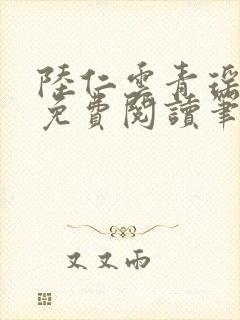 陸仁雲青瑤
免費閱讀筆
又又雨